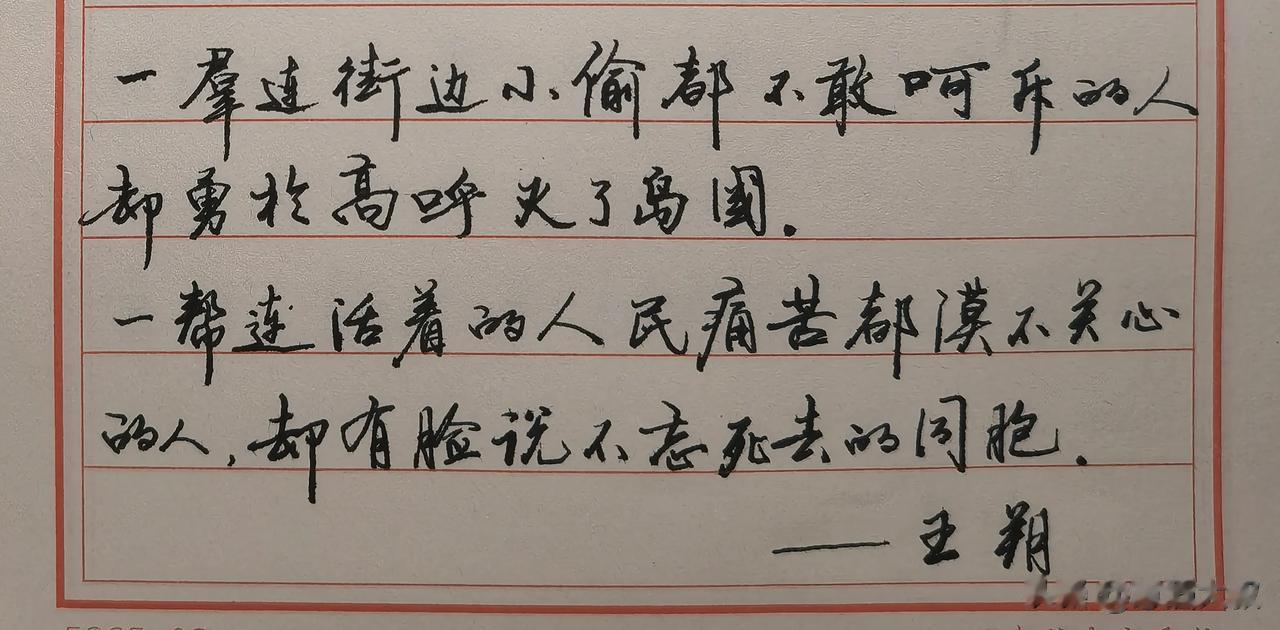 一羣连街边小偷都不敢呵斥的人
却勇於高呼灭了岛國.
一帮连活着的人民痛苦都漠不关心
的人,却有脸说不忘死去的同胞.
——王朔